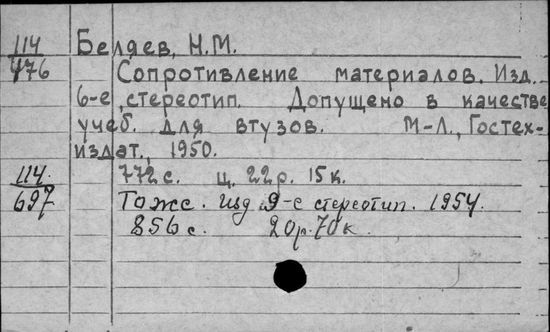 114 Беляев, Н.М.
476 Сопротивление материалов. Изд.
6-е, стереотип. Допущено в качестве
учеб. для втузов. М-Л., Гостех-
издат., 1950.
114. 772 с. ц. 22 р. 15 к.
697 Тоже. Изд. 9-е стереотип. 1954.
856 с. 20 р. 70 к.